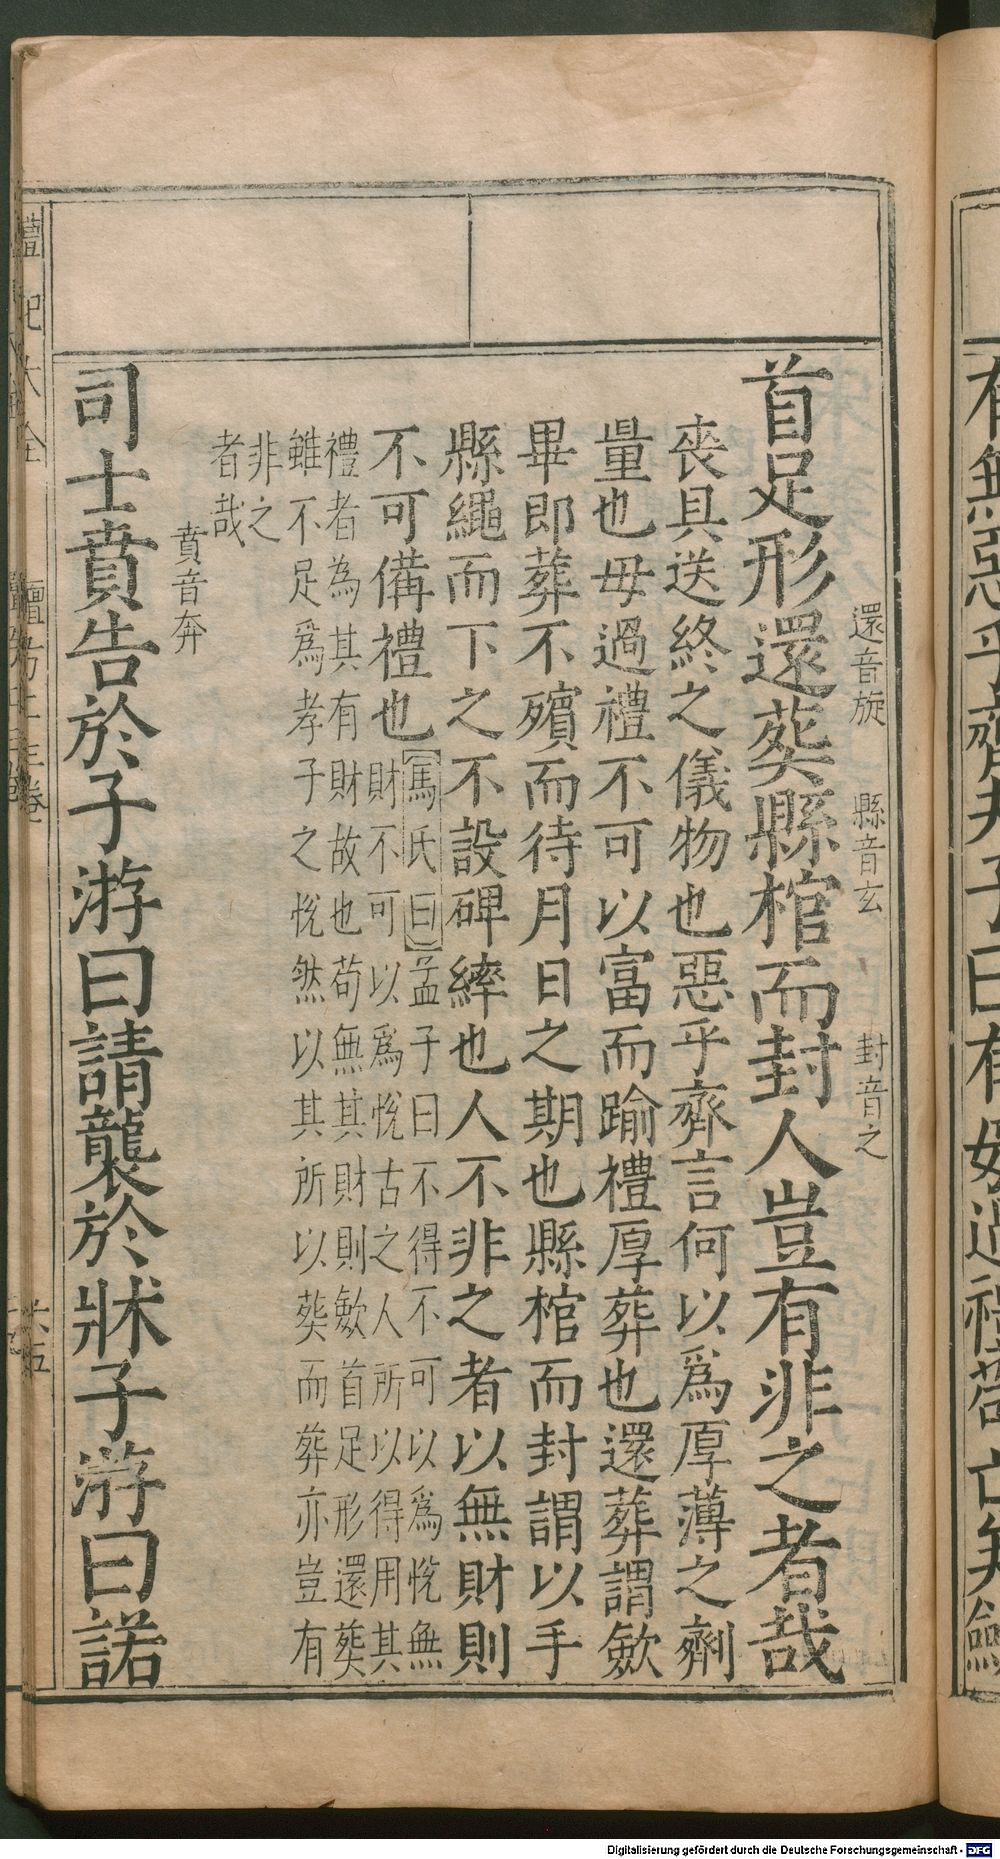 還音旋 縣音玄 封音之
首足形還葬縣棺而封人豈有非之者哉
喪具送終之儀物也惡乎齊言何以爲厚薄之劑
量也毋過禮不可以富而踰禮厚葬也還葬謂斂
畢即葬不殯而待月日之期也縣棺而封謂以手
縣繩而下之不設碑繂也人不非之者以無財則
不可備禮也
馬氏曰孟子曰不得不可以爲悅無
財不可以爲悅古之人所以得用其
禮者為其有財故也苟無其財則斂首足形還葬
雖不足爲孝子之悅然以其所以葬而葬亦豈有
非之
者哉
賁音奔
司士賁告於子游曰請襲於牀子游曰諾
禮記大全
檀弓上三卷
六五
Digitalisierung gefördert durch die Deutsche Forschungsgemeinschaft - DFG